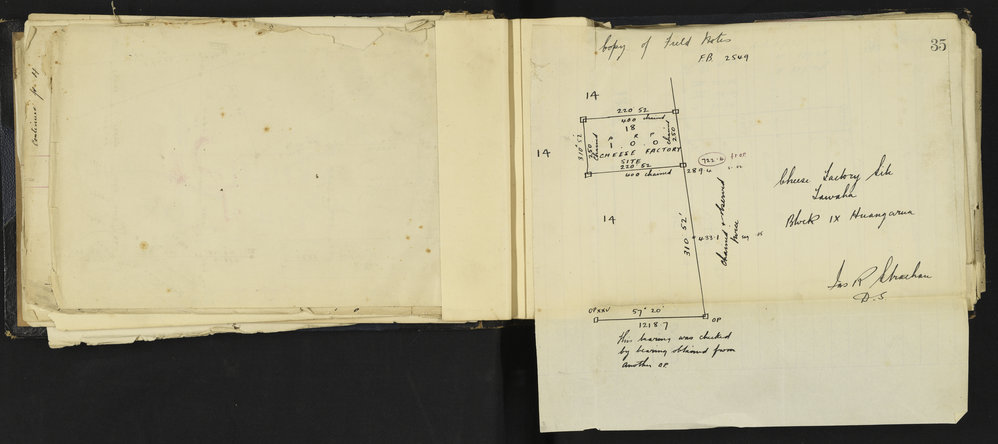 Continued for
35
Copy of Field Notes
F.B. 2549
14
220 52
400 chained
18
A R P
1 0 0
CHEESE FACTORY
SITE
220 52
400 chained
310° 52
250 chained
250 chained
14
722.4
289.4
chained & observed
twice
310 52'
433.1
14
Cheese Factory Site
Tawaha
Block IX Huangarua
Jas R Strachan
D.S
OP XXV
57° 20'
1218 7
OP
This bearing was checked
by bearing obtained from
another OP